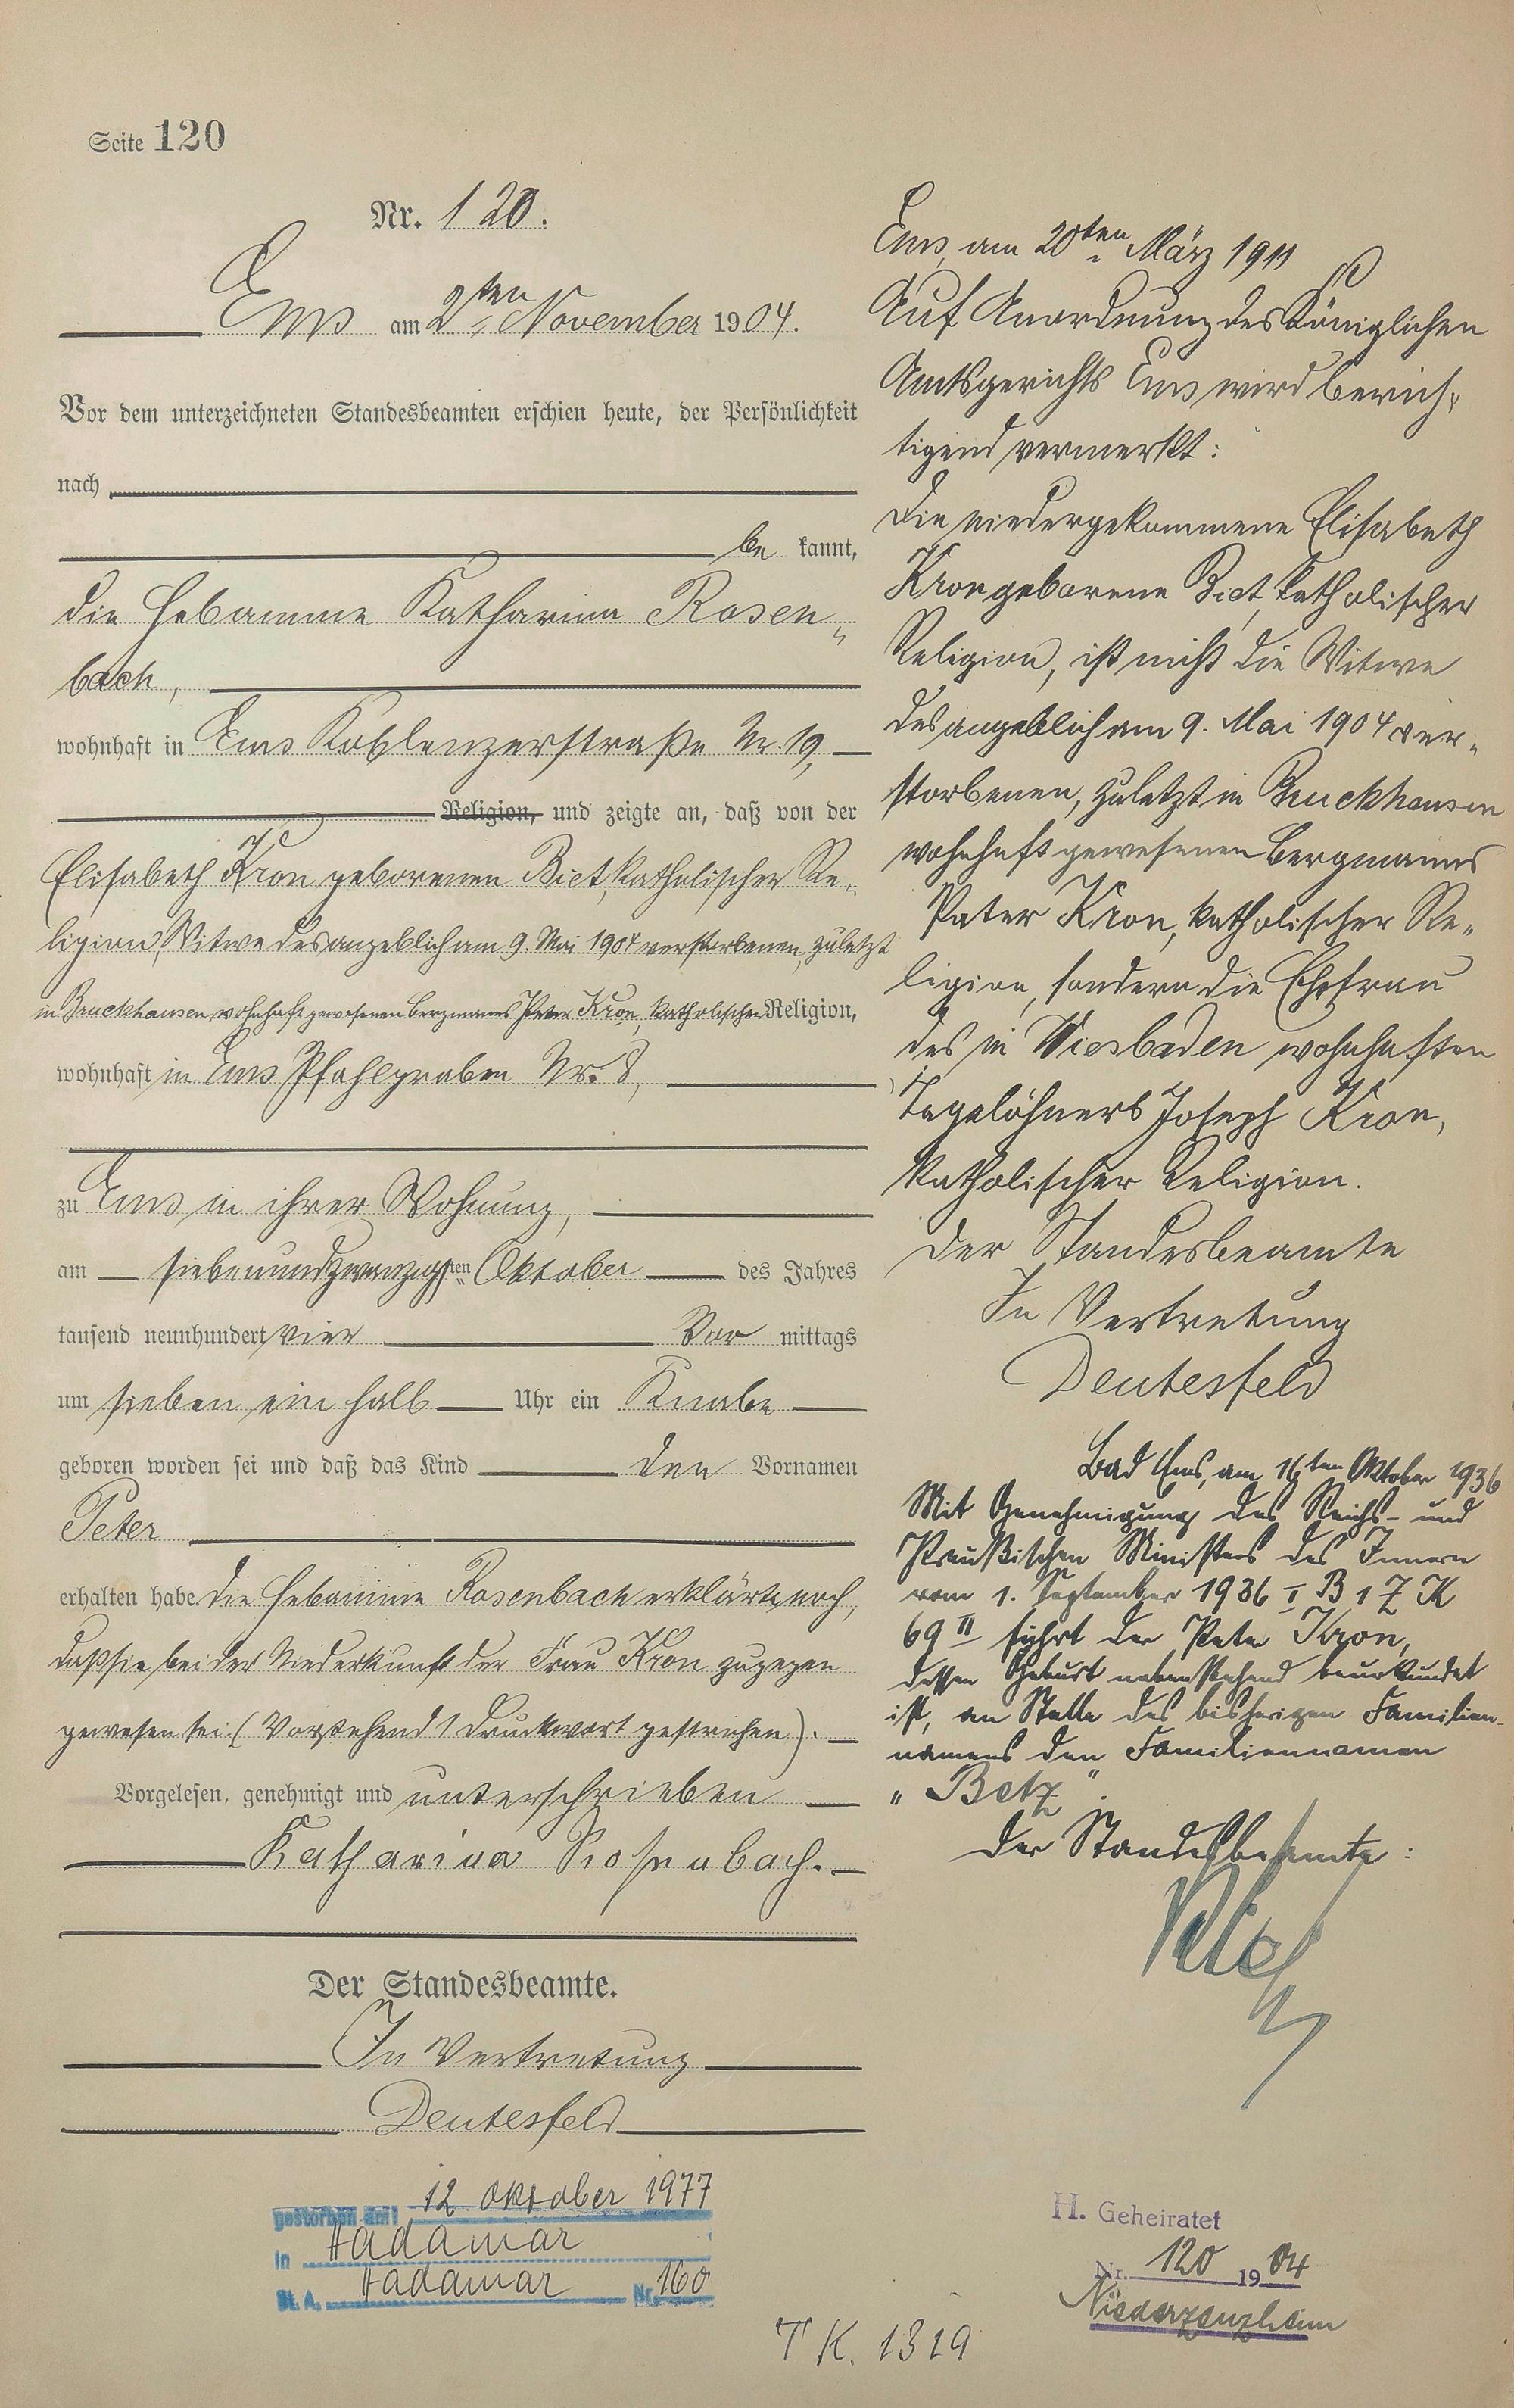 Seite 120
Nr. 120.
Ems am 2ten November 1904.
Vor dem unterzeichneten Standesbeamten erschien heute, der Persönlichkeit
nach
be kannt,
die Hebamme Katharina Rosen„
bach,
wohnhaft in Ems Koblenzerstraße Nr. 19,
Religion, und zeigte an, daß von der
Elisabeth Kron geborenen Biet, katholischer Re„
ligion, Witwe des angeblich am 9. Mai 1904 verstorbenen, zuletzt
in Bruckhausen wohnhaft gewesenen Bergmanns Peter Kron, katholischer Religion,
wohnhaft in Ems Pfahlgraben Nr. 8,
zu Ems in ihrer Wohnung,
am siebenundzwanzigsten Oktober des Jahres
tausend neunhundert vier Vor mittags
um sieben ein halb Uhr ein Knabe
geboren worden sei und daß das Kind den Vornamen
Peter
erhalten habe. Die Hebamme Rosenbach erklärte noch,
daß sie bei der Niederkunft der Frau Kron zugegen
gewesen sei. (Vorstehend 1 Druckwort gestrichen).
Vorgelesen, genehmigt und unterschrieben
Katharina Rosenbach.
Der Standesbeamte.
In Vertretung
Deutesfeld
gestorben am 12 Oktober 1977
in Hadamar
St. A. Hadamar Nr. 160
Ems, am 20ten März 1911
Auf Anordnung des Königlichen
Amtsgerichts Ems wird berich„
tigend vermerkt:
Die niedergekommene Elisabeth
Kron geborene Biet, katholischer
Religion, ist nicht die Witwe
des angeblich am 9. Mai 1904 ver„
storbenen, zuletzt in Bruckhausen
wohnhaft gewesenen Bergmanns
Peter Kron, katholischer Re„
ligion, sondern die Ehefrau
des in Wiesbaden wohnhaften
Tagelöhners Joseph Kron,
katholischer Religion.
Der Standesbeamte
In Vertretung
Deutesfeld
Bad Ems, am 16ten Oktober 1936
Mit Genehmigung des Reichs- und
Preußischen Ministers des Innern
vom 1. September 1936 I B 1 Z K
69 II führt der Peter Kron,
dessen Geburt nebenstehend beurkundet
ist, an Stelle des bisherigen Familien-
namens den Familiennamen
„Betz".
Der Standesbeamte:
H. Geheiratet
Nr. 120 1904
Niederzeuzheim
T K. 1319